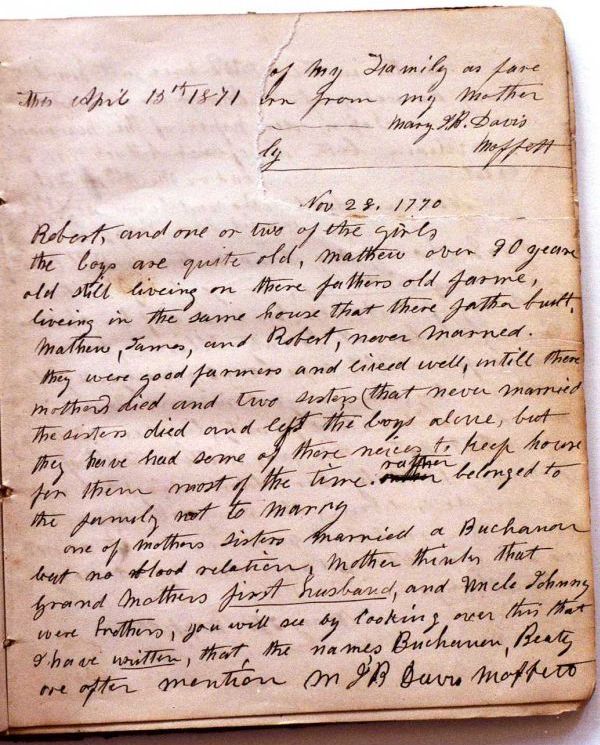 of My Family as fare
This April 13th 1871 rn from my Mother
Mary J.B. Davis
ly Moffett
Nov 28, 1770
Robert, and one or two of the girls
the boys are quite old, Mathew over 90 years
old still liveing on there fathers old farme,
liveing in the same house that there father built.
Mathew, James, and Robert, never married.
they were good farmers and liveed well, intill there
mother died and two sisters (that never married
the sisters died and left the boys alone, but
they have had some of there neices to keep house
for them most of the time. rather belonged to
the family not to marry
one of mothers sisters married a Buchanon
but no blood relation, Mother thinks that
Grand Mothers first husband, and Uncle Johnny
were brothers, you will see by looking over this that
I have written, that, the names Buchanen, Beaty
are often mention M J B Davis Moffett